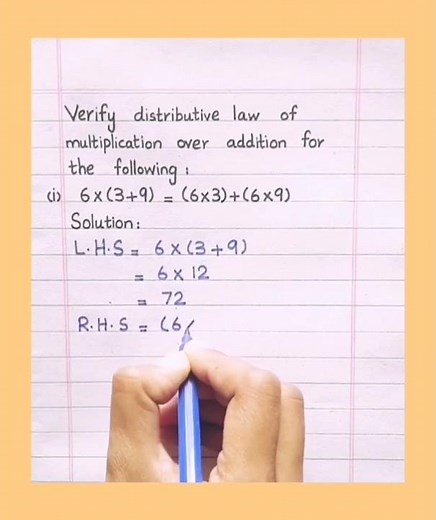 Verify distributive law of
multiplication over addition for
the following:
(i) 6×(3+9) = (6×3)+(6×9)
Solution:
L.H.S = 6×(3+9)
= 6×12
= 72
R.H.S = (6